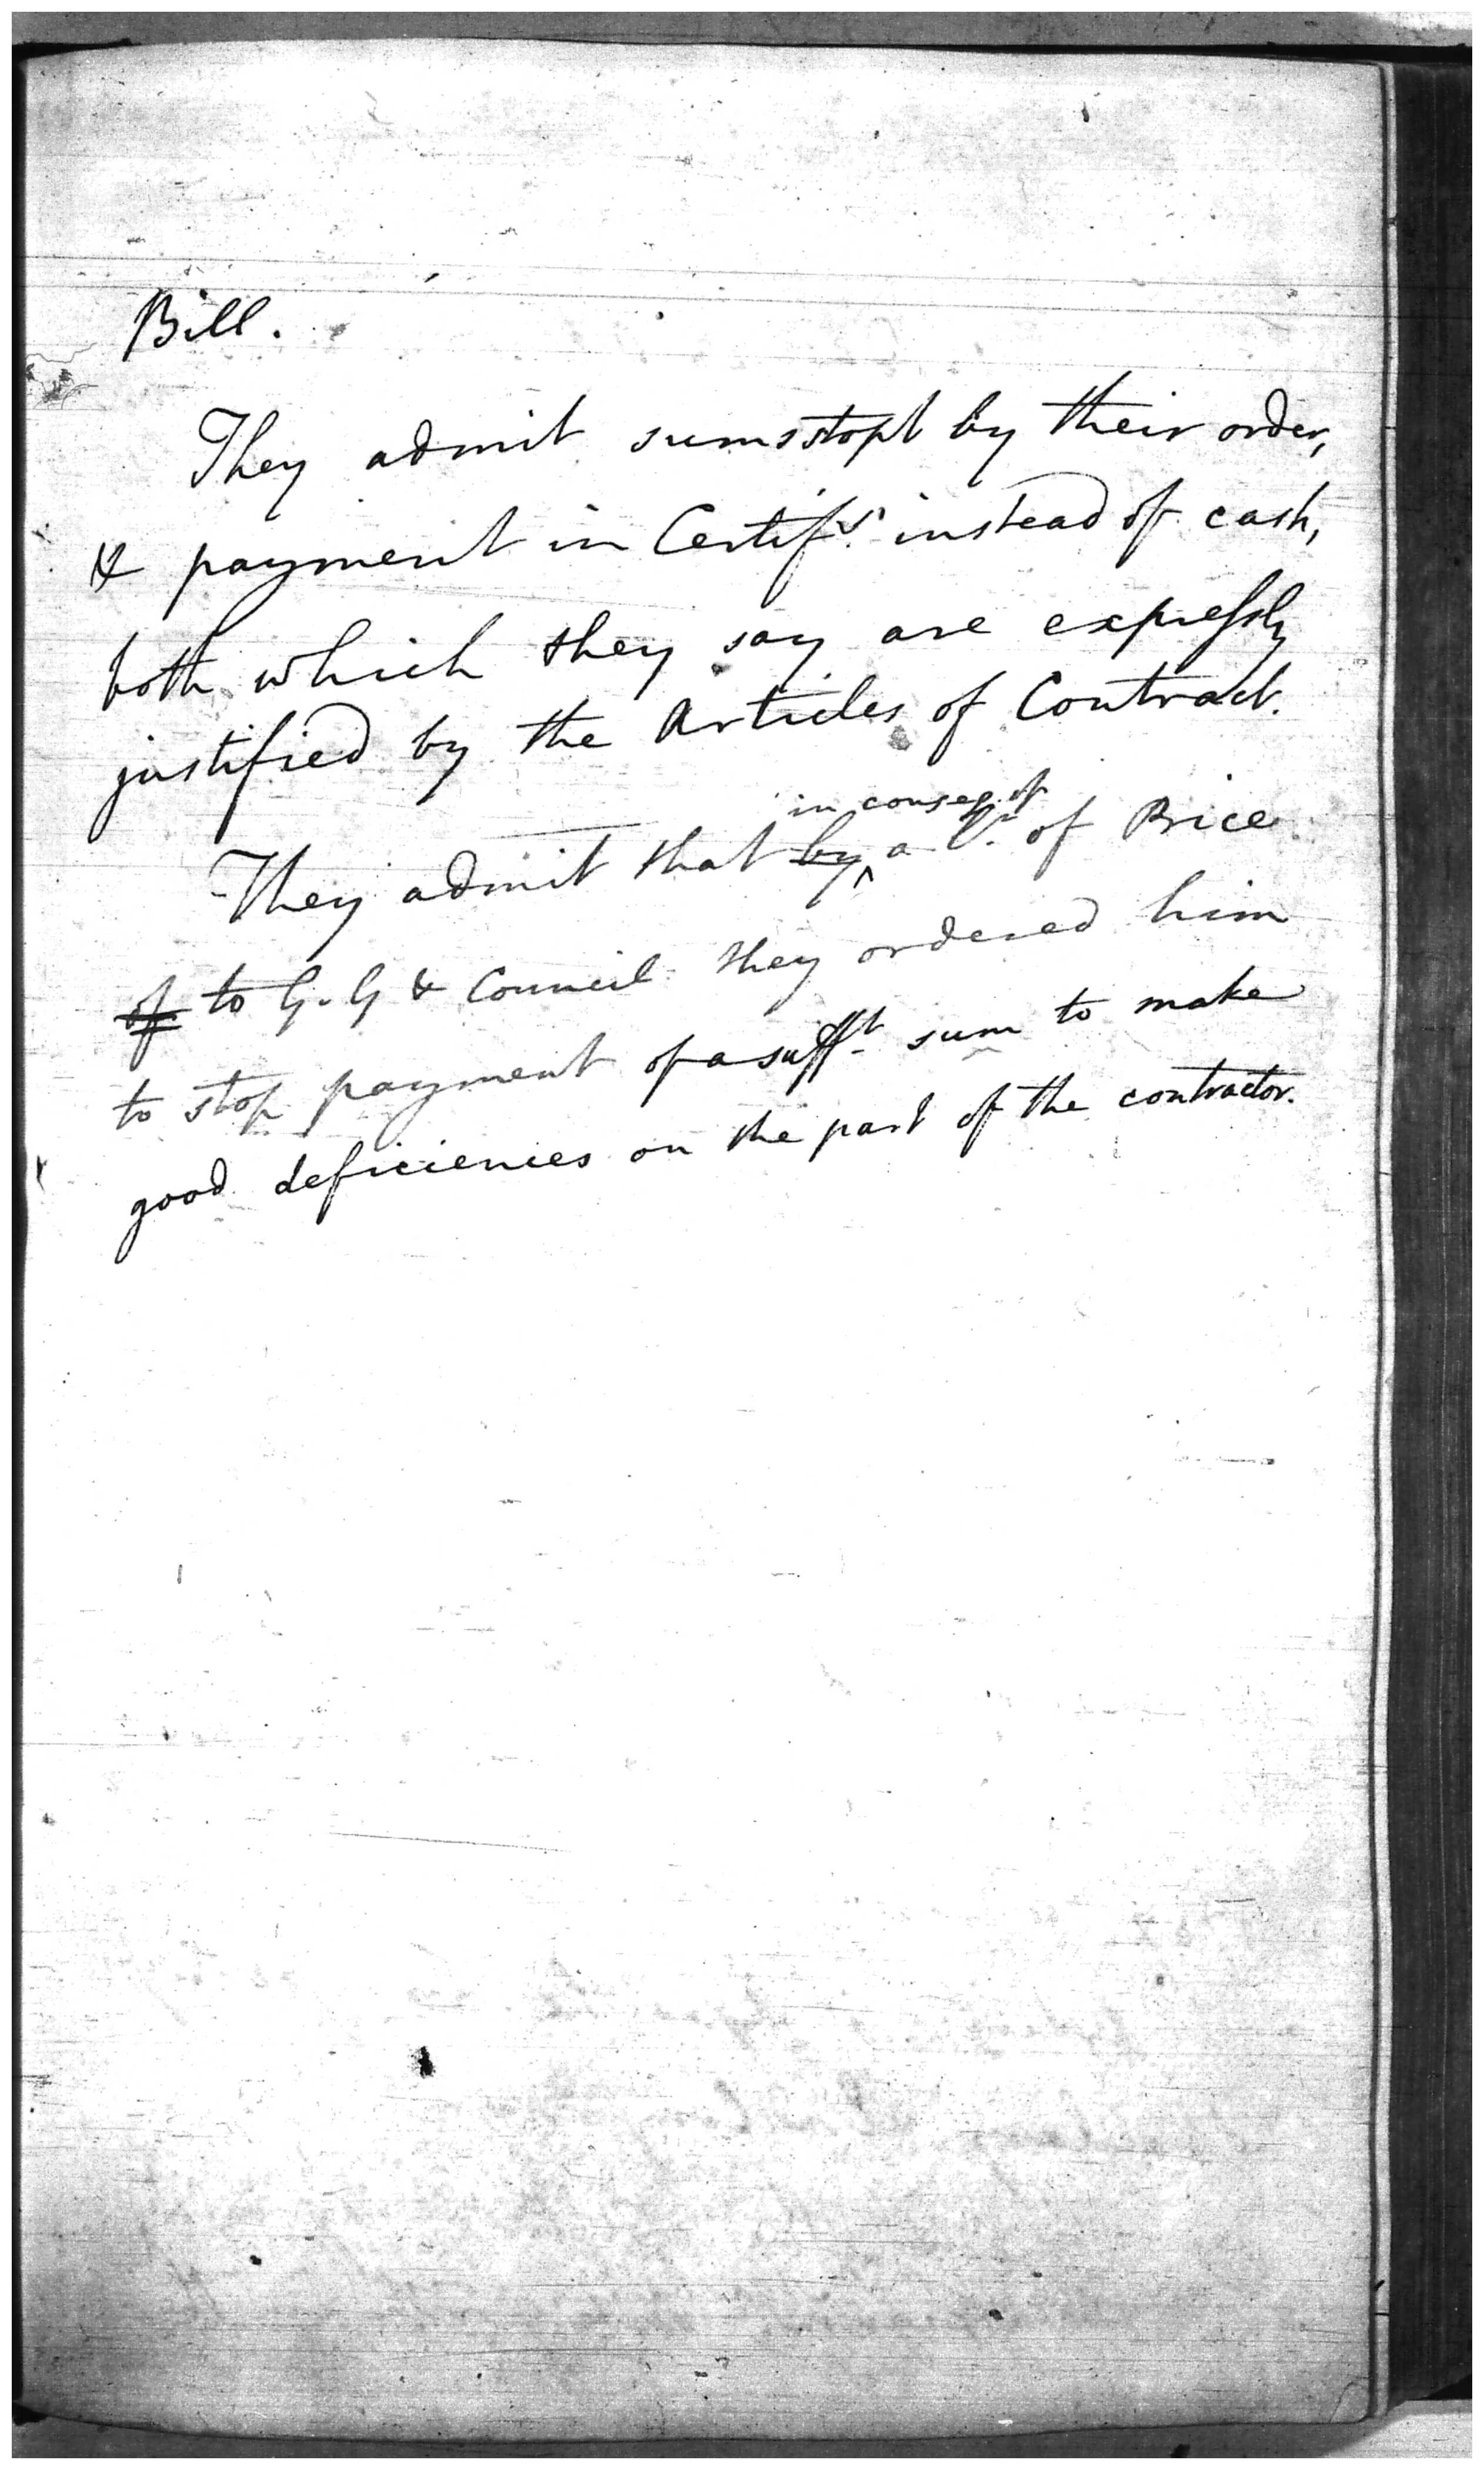 Bill.
They admit sums stopt by their order,
& payment in Certifs. instead of cash,
both which they say are expressly
justified by the Articles of Contract.
in conseq. of
They admit that by a of Price
of to G. G & Council they ordered him
to stop payment of a sufft. sum to make
good deficiencies on the part of the contractor.